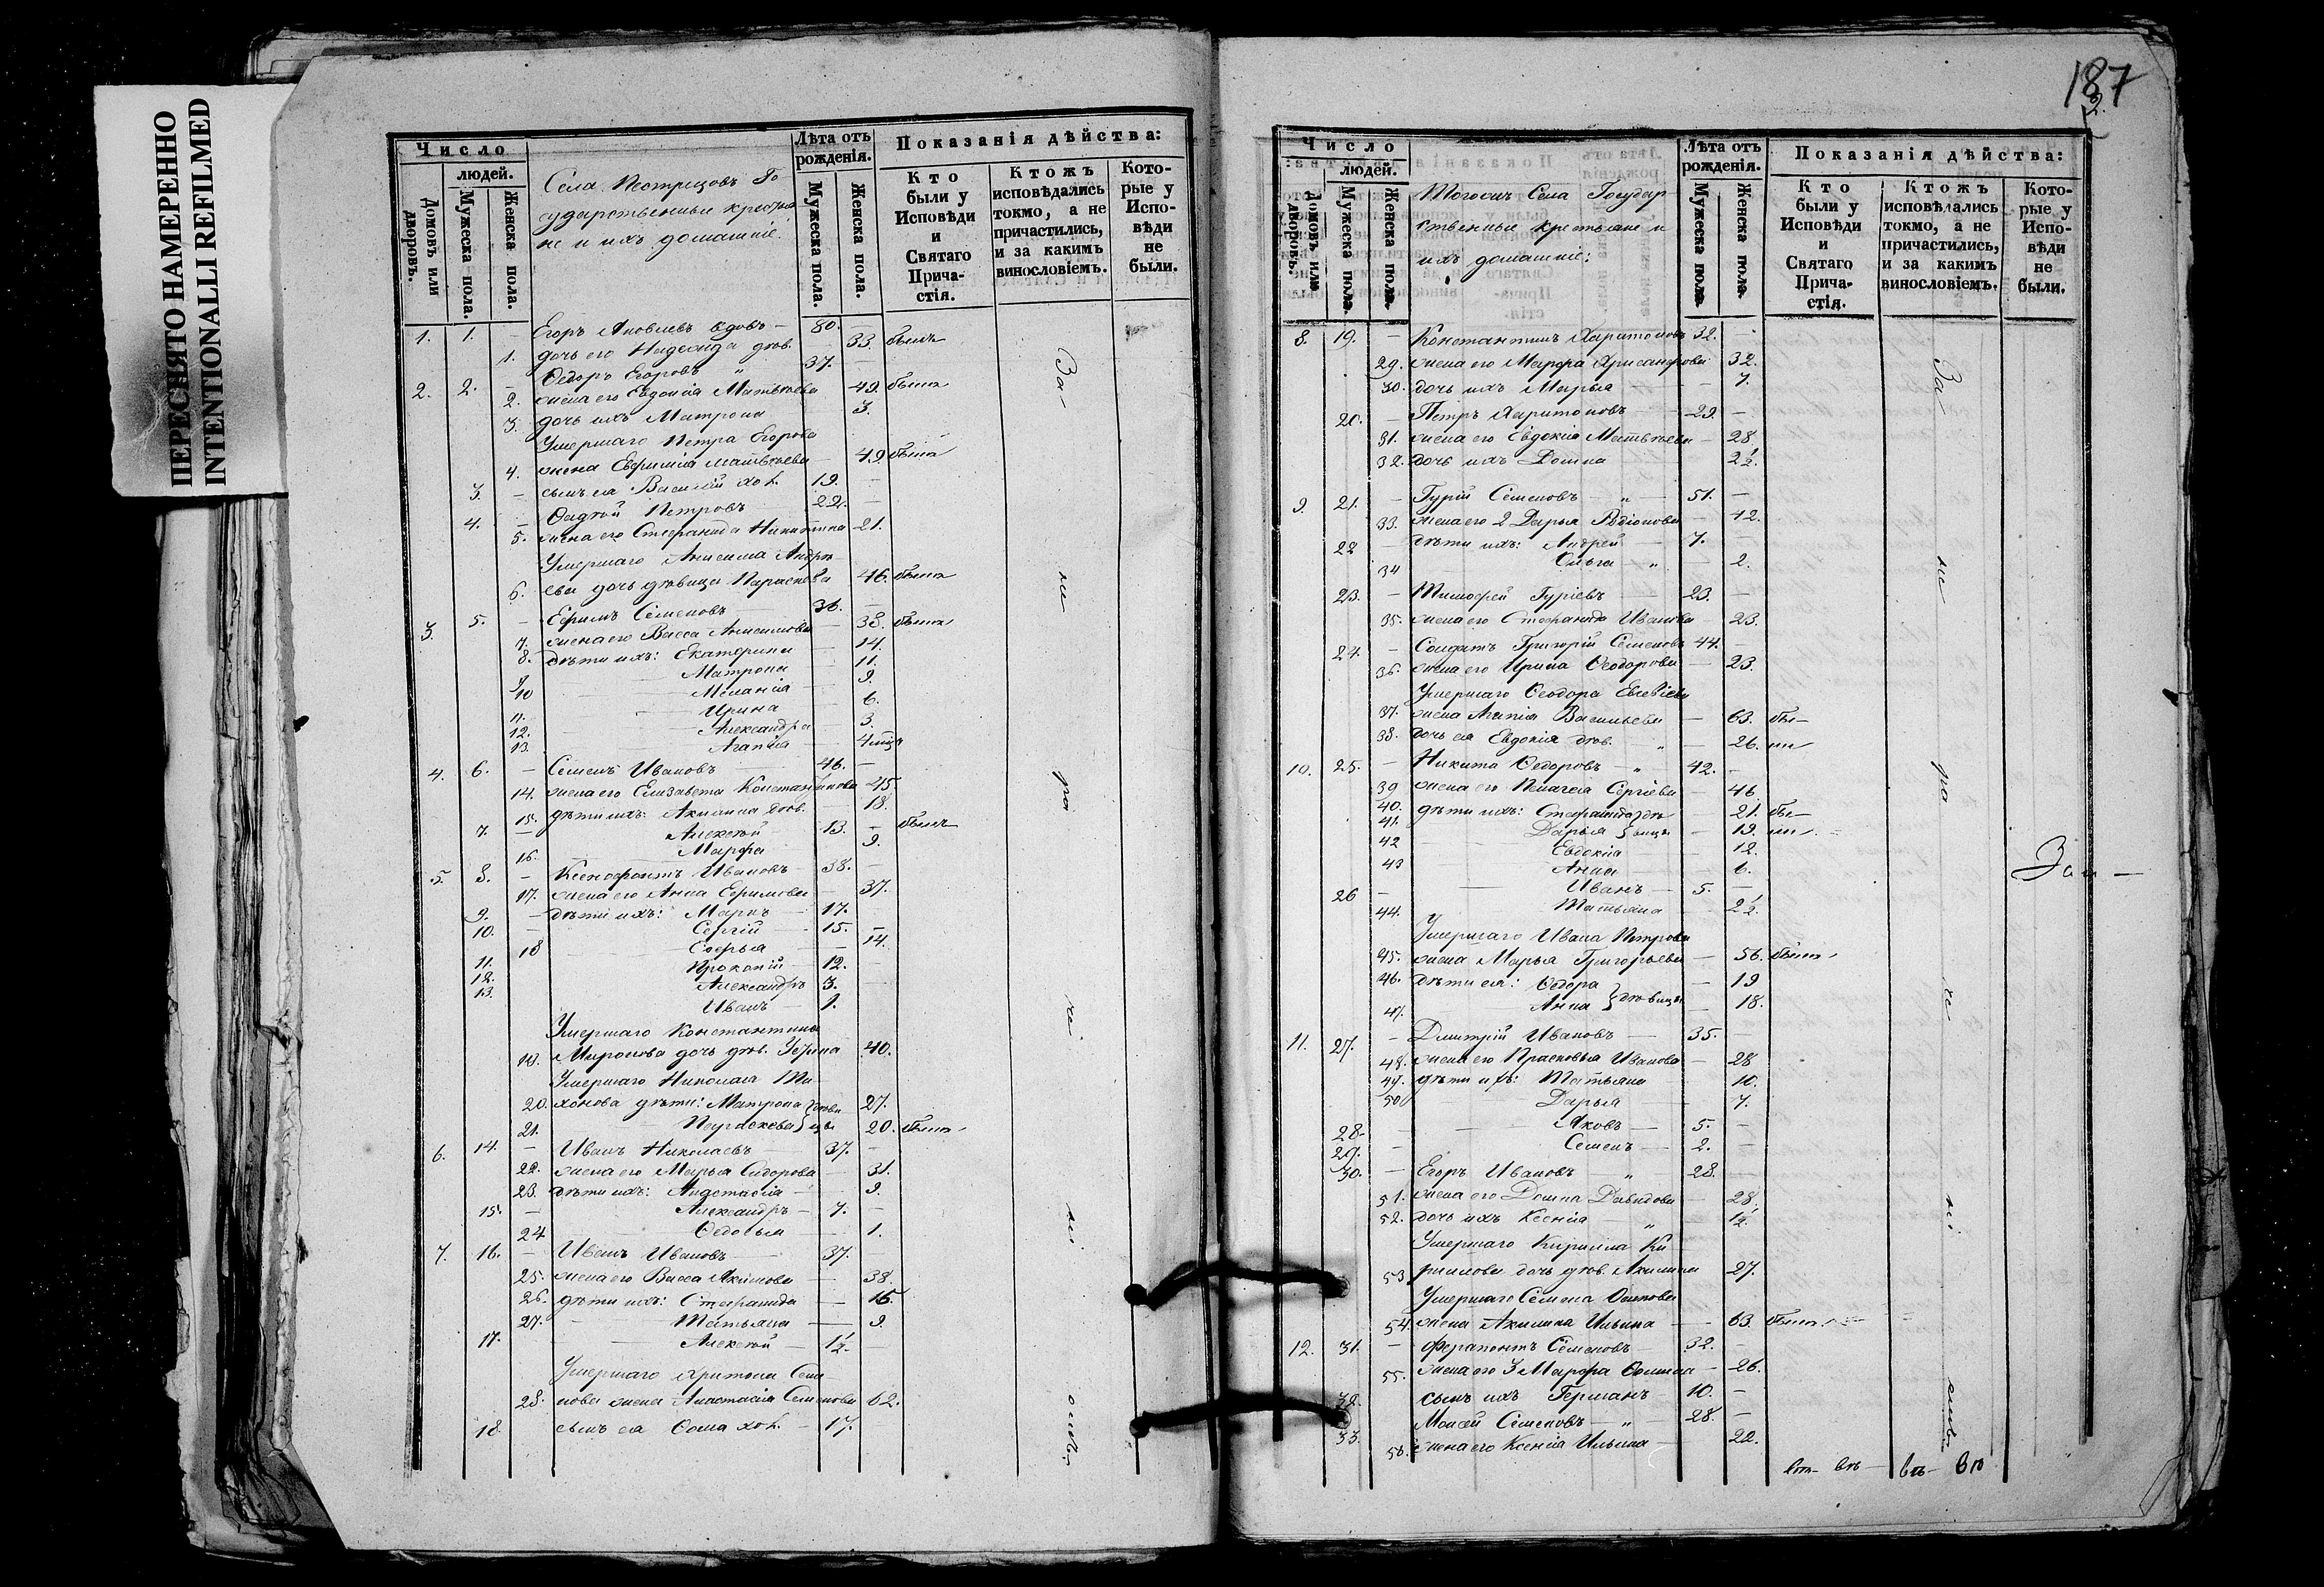 ПЕРЕСНЯТО НАМЕРЕННО
INTENTIONALLI REFILMED
Число
людей.
Домовъ или дворовъ.
Мужеска пола.
Женска пола.
Села Пестрецовъ Го-
сударственные крестья-
не и ихъ домашніе.
Лѣта отъ рожденія.
Мужеска пола.
Женска пола.
Показанія дѣйства:
Кто были у Исповѣди и Святаго Прича-стія.
Ктожъ исповѣдались токмо, а не причастились, и за какимъ винословіемъ.
Кото-рые у Испо-вѣди не были.
1. 1. – Егоръ Яковлевъ вдовъ – 80. –
1. дочь его Надежда дѣв. 33. былъ
2. 2. – Ѳедоръ Егоровъ " 37. –
2. жена его Евдокія Матвѣева 49. были
3. дочь ихъ Матрона 3.
Умершаго Петра Егорова
4. жена Евфимія Матвѣева 49. была
3. – сынъ ея Василій хол. 19. –
4. – Фадѣй Петровъ 22. –
5. жена его Стефанида Никитина 21.
Умершаго Анисима Андре-
6. ева дочь дѣвица Параскева 46. была
3. 5. – Ефимъ Семеновъ 36. –
7. жена его Васса Анисимова – 38. были
8. дѣти ихъ: Екатерина – 14.
9. Матрона – 11.
10 Меланія – 9.
11. Ирина – 6.
12. Александра 3.
13. Агапія – 4 мцъ
4. 6. – Семенъ Ивановъ 46. –
14. жена его Елизавета Константинова 45.
15. дѣти ихъ: Акилина дѣв. 18.
7. – Алексѣй – 13. – былъ
16. Марфа 9.
5. 8. – Ксенофонтъ Ивановъ – 38. –
17. жена его Анна Ефимова – 37.
9. – дѣти ихъ: Маркъ – 17.
10. – Сергій – 15. –
18 Софья – 14.
11. Прокопій – 12. –
12. Александръ 3. –
13. Иванъ – 1.
Умершаго Константина
19. Миронова дочь дѣв. Ирина 40.
Умершаго Николая Ти-
20. хонова дѣти: Матрона } дѣви 27.
21. Параскева } цы 20. были
6. 14. – Иванъ Николаевъ 37. –
22. жена его Марья Сидорова – 31.
23. дѣти ихъ: Анастасія – 9.
15. – Александръ – 7. –
24 Федосья – 1.
7. 16. – Иванъ Ивановъ 37.
25. жена его Васса Акимова – 38.
26. дѣти ихъ: Стефанида – 15.
27. Татьяна – 9.
17. Алексѣй – 1½. –
Умершаго Харитона Семе-
28. нова жена Анастасія Семенова 62.
18. сынъ ея Фома хол. – 17.
За-
не
ра
че
ні
емъ
187
2.
Число
людей.
Домовъ или дворовъ.
Мужеска пола.
Женска пола.
Тогожъ Села Государ-
ственные крестьяне и
ихъ домашніе:
Лѣта отъ рожденія.
Мужеска пола.
Женска пола.
Показанія дѣйства:
Кто были у Исповѣди и Святаго Прича-стія.
Ктожъ исповѣдались токмо, а не причастились, и за какимъ винословіемъ.
Кото-рые у Испо-вѣди не были.
8. 19. – Константинъ Харитоновъ 32. –
29. жена его Марфа Хрисанфова 32.
30. дочь ихъ Марья – 7.
20. – Петръ Харитоновъ – 29. –
31. жена его Евдокія Матвѣева – 28.
32. дочь ихъ Домна 2½.
9. 21. – Гурій Семеновъ – " – 51. –
33. жена его 2 Дарья Родіонова – 42.
22 – дѣти ихъ: Андрей – 7. –
34 Ольга – " – 2.
23. – Тимофей Гуріевъ – 23. –
35. жена его Стефанида Иванова – 23.
24. – Солдатъ Григорій Семеновъ 44. –
36. жена его Ирина Ѳеодорова – 23.
Умершаго Ѳеодора Евсѣева
37. жена Агапія Васильева – 63. бы-
38. дочь ея Евдокія дѣв. – " – 26. ли
10. 25. – Никита Ѳедоровъ – " – 42. –
39 жена его Пелагея Сергіева – 46
40. дѣти ихъ: Стефанида } дѣ 21. бы-
41. Дарья } вицы – 19. ли
42 Евдокія – 12.
43 Анна – 6.
26 – Иванъ – 5. –
44. Татьяна – 2½.
Умершаго Ивана Петрова
45. жена Марья Григорьева – 56. были
46. дѣти ея: Ѳедора – 19
47. Анна } дѣвицы – 18.
11. 27. – Дмитрій Ивановъ – 35. –
48. жена его Прасковья Иванова – 28
49. дѣти ихъ: Татьяна – 10.
50 Дарья – 7.
28. Яковъ – 5. –
29. Семенъ – 2. –
30. – Егоръ Ивановъ " 28. –
51. жена его Домна Давидова – 28.
52. дочь ихъ Ксенія – " 1½.
Умершаго Кирилла Ки-
53. риллова дочь дѣв. Акилина 27.
Умершаго Семена Осипова
54. жена Акилина Ильина – 63. была
12. 31. – Ферапонтъ Семеновъ – 32. –
55. жена его 3 Марфа Фомина – 26.
32. сынъ ихъ Германъ 10. –
33. Моисей Семеновъ – " – 28. –
56. жена его Ксенія Ильина – 22.
За-
не
ра
че
ні
емъ